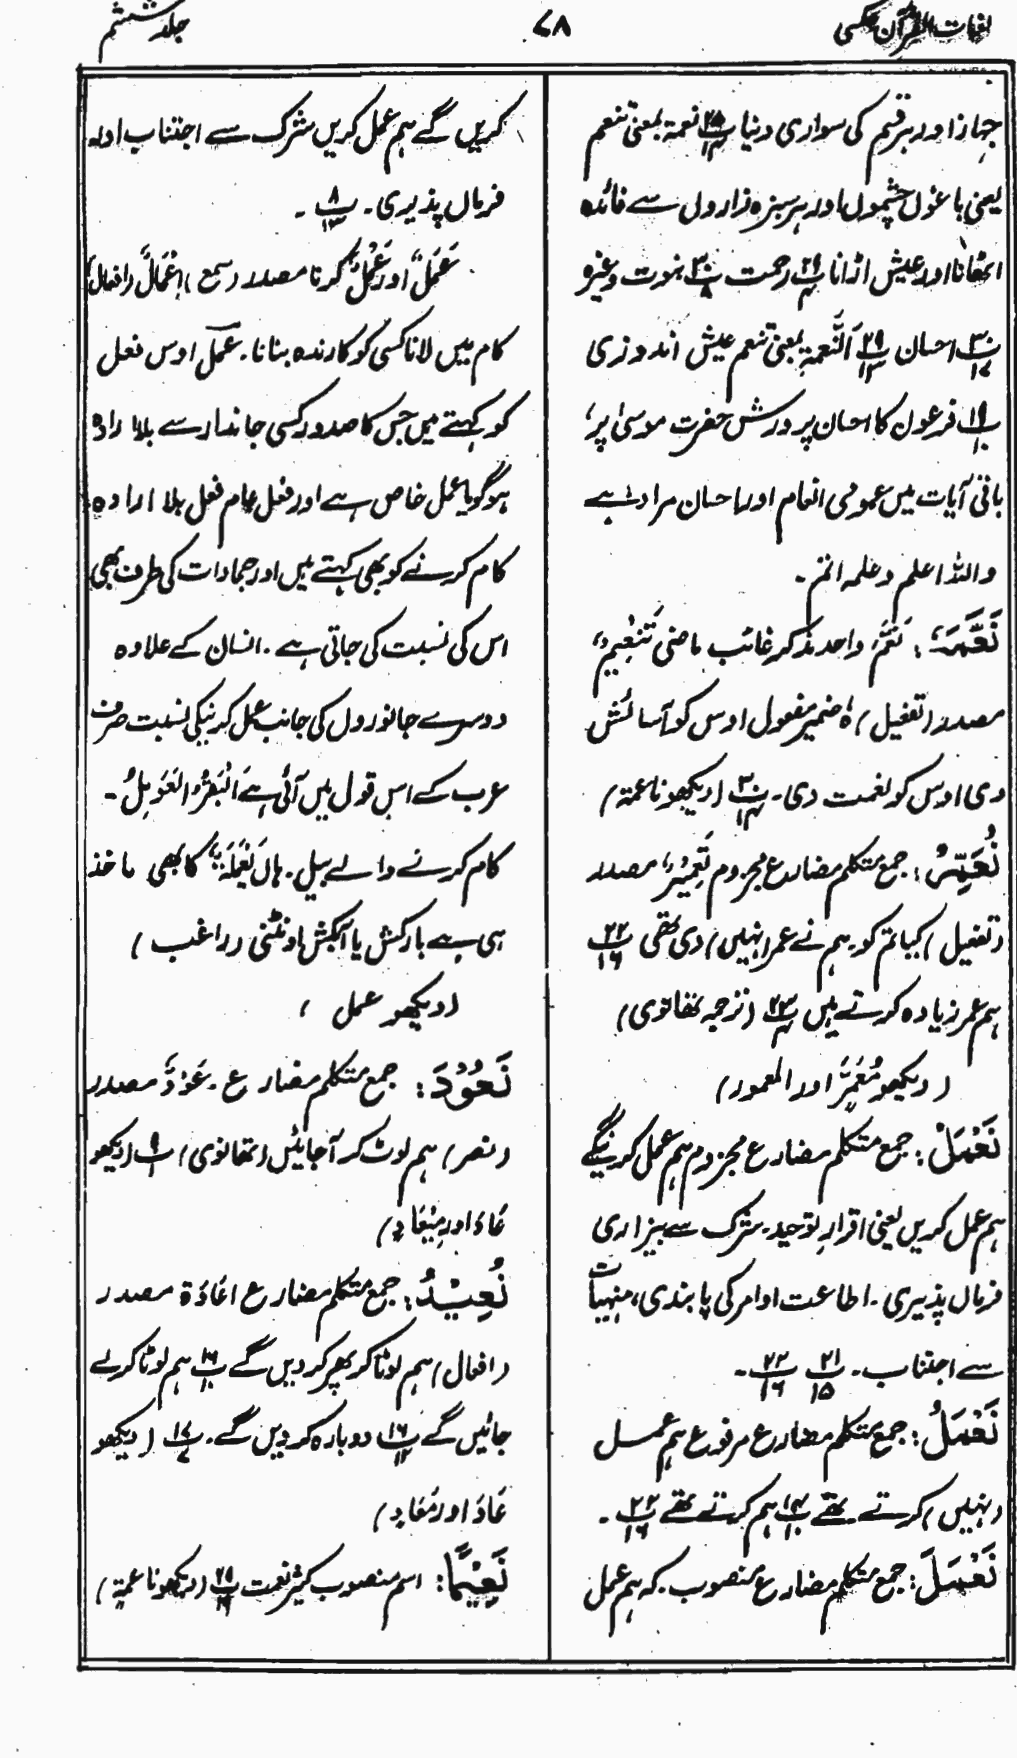 لغات القرآن عکسی
۷۸
جلد ششم
جہاز اور ہر قسم کی سواری دنیا نعمۃ بمعنی تنعم
یعنی باغوں چشموں اور ہر سبزہ زاروں سے فائدہ
اٹھانا اور عیش اڑانا رحمت نبوت وغیرہ
احسان اَلنَّعمۃِ بمعنی تنعم عیش اندوزی
فرعون کا احسان پرورش حضرت موسیٰ پر،
باقی آیات میں عمومی انعام اور احسان مراد ہے
واللہ اعلم وعلمہ اتم۔
نَعَّمَہٗ: نَعَّمَ، واحد مذکر غائب ماضی تَنْعِیْمٌ،
مصدر (تفعیل) ہٗ ضمیر مفعول اوس کو آسائش
دی اوس کو نعمت دی۔ ۳۰/۱۴ (دیکھو ناعمۃ)
نُعَمِّرْ: جمع متکلم مضارع مجزوم تَعْمِیْرٌ، مصدر
(تفعیل) کیا تم کو ہم نے عمر (نہیں) دی تھی ۲۲/۱۶
ہم عمر زیادہ کرتے ہیں (ترجمہ تھانوی)
(دیکھو مُعَمَّرٌ اور المعمور)
نَعْمَلْ: جمع متکلم مضارع مجزوم ہم عمل کرینگے
ہم عمل کریں یعنی اقرارِ توحید۔ شرک سے بیزاری
فرماں پذیری۔ اطاعت اوامر کی پابندی، منہیات
سے اجتناب۔ ۲۱/۱۵ ۲۲/۱۶۔
نَعْمَلُ: جمع متکلم مضارع مرفوع ہم عمل
(نہیں) کرتے۔ تھے ۱۴/۱۰ ہم کرتے تھے ۲۲/۱۶۔
نَعْمَلَ: جمع متکلم مضارع منصوب۔ کہ ہم عمل
کریں گے ہم عمل کریں شرک سے اجتناب اور
فرماں پذیری۔ ۸/۱۳۔
عَمَلٌ اور عَمَلٌ کرنا مصدر (سمع)، اِعْمَالٌ (افعال)
کام میں لانا کسی کو کارندہ بنانا۔ عمل اوس فعل
کو کہتے ہیں جس کا صدور کسی جاندار سے بلا ارادہ
ہو گویا عمل خاص ہے اور فعل عام فعل بلا ارادہ
کام کرنے کو بھی کہتے ہیں اور جمادات کی طرف بھی
اس کی نسبت کی جاتی ہے۔ انسان کے علاوہ
دوسرے جانوروں کی جانب عمل کرنیکی نسبت صرف
عرب کے اس قول میں آئی ہے اَلْبَقَرُ الْعَوَامِلُ۔
کام کرنے والے بیل۔ ہاں یَعْمَلَۃٌ کا بھی ماخذ
ہی ہے بارکش یا آبکش اونٹنی (راغب)
(دیکھو عمل)
نَعُوْدَ: جمع متکلم مضارع۔ عَوْدٌ مصدر
(نصر) ہم لوٹ کر آجائیں (تھانوی) ۹/۱ (دیکھو
عَادَ اور مِیْعَاد)
نُعِیْدُ: جمع متکلم مضارع اعَادَۃ مصدر
(افعال) ہم لوٹا کر پھر کر دیں گے ۱۶/۱۰ ہم لوٹا کر لے
جائیں گے ۱۶/۱۲ دوبارہ کر دیں گے۔ ۱۷/۷ (دیکھو
عَادَ اور مَعَاد)
نَعِیْمًا: اسم منصوب کثیر نعمت (دیکھو ناعمۃ)